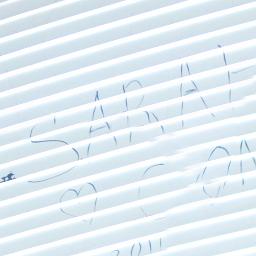 SARAH
♡ CON
2011